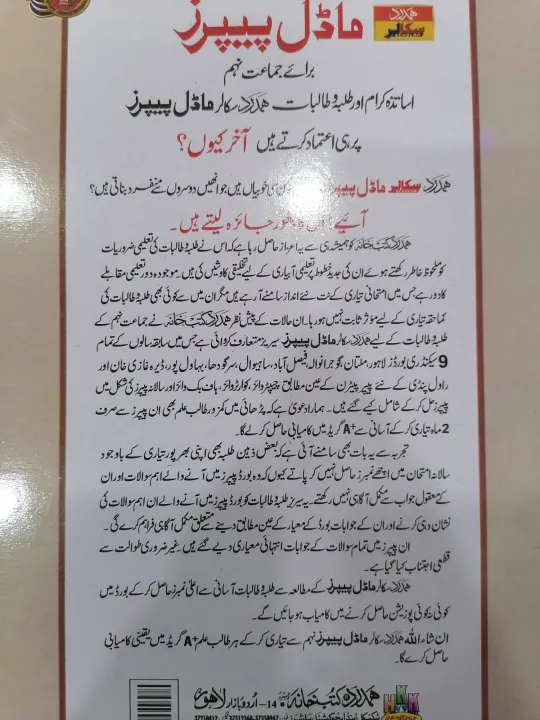 ہمدرد سکالر ماڈل پیپرز
برائے جماعت نہم
اساتذہ کرام اور طلبہ و طالبات ہمدرد سکالر ماڈل پیپرز
پر ہی اعتماد کرتے ہیں آخر کیوں؟
ہمدرد سکالر ماڈل پیپرز کی خوبیاں ہیں جو انھیں دوسروں سے منفرد بناتی ہیں؟
آیئے! جائزہ لیتے ہیں۔
ہمدرد کتب خانہ کو ہمیشہ ہی سے یہ اعزاز حاصل رہا ہے کہ اس نے طلبہ و طالبات کی تعلیمی ضروریات
کو ملحوظ خاطر رکھتے ہوئے ان کی جدید خطوط پر تعلیمی آبیاری کے لیے تخلیقی کاوشیں کی ہیں۔ موجودہ دور تعلیمی مقابلے
کا دور ہے جس میں امتحانی تیاری کے نت نئے انداز سامنے آ رہے ہیں مگر ان میں سے کوئی بھی طلبہ و طالبات کی
کماحقہ تیاری کے لیے مؤثر ثابت نہیں ہو رہا۔ ان حالات کے پیش نظر ہمدرد کتب خانہ نے جماعت نہم کے
طلبہ و طالبات کے لیے ہمدرد سکالر ماڈل پیپرز سیریز متعارف کروائی ہے جس میں سابقہ سالوں کے تمام
9 سیکنڈری بورڈز لاہور، ملتان، گوجرانوالہ، فیصل آباد، ساہیوال، سرگودھا، بہاول پور، ڈیرہ غازی خان اور
راول پنڈی کے نئے پیپر پیٹرن کے عین مطابق چیپٹر وائز، کوارٹر وائز، ہاف بک وائز اور سالانہ پیپرز کی شکل میں
پیپرز حل کر کے شامل کیے گئے ہیں۔ ہمارا دعویٰ ہے کہ پڑھائی میں کمزور طالب علم بھی ان پیپرز سے صرف
2 ماہ تیاری کر کے آسانی سے A+ گریڈ میں کامیابی حاصل کر لے گا۔
تجربہ سے یہ بات بھی سامنے آئی ہے کہ بعض ذہین طلبہ بھی اپنی بھرپور تیاری کے باوجود
سالانہ امتحان میں اچھے نمبرز حاصل نہیں کر پاتے کیوں کہ وہ بورڈ پیپرز میں آنے والے اہم سوالات اور ان
کے معقول جواب سے مکمل آگاہی نہیں رکھتے۔ یہ سیریز طلبہ و طالبات کو بورڈ پیپرز میں آنے والے ان اہم سوالات کی
نشان دہی کرنے اور ان کے جوابات بورڈ کے معیار کے عین مطابق دینے سے متعلق مکمل آگاہی فراہم کرے گی۔
ان پیپرز میں تمام سوالات کے جوابات انتہائی معیاری دیے گئے ہیں۔ غیر ضروری طوالت سے
قطعی اجتناب کیا گیا ہے۔
ہمدرد سکالر ماڈل پیپرز کے مطالعہ سے طلبہ و طالبات آسانی سے اعلیٰ نمبرز حاصل کر کے بورڈ میں
کوئی نہ کوئی پوزیشن حاصل کرنے میں کامیاب ہو جائیں گے۔
ان شاء اللہ ہمدرد سکالر ماڈل پیپرز نہم سے تیاری کر کے ہر طالب علم A+ گریڈ میں یقینی کامیابی
حاصل کرے گا۔
ہمدرد کتب خانہ 14- اردو بازار لاہور